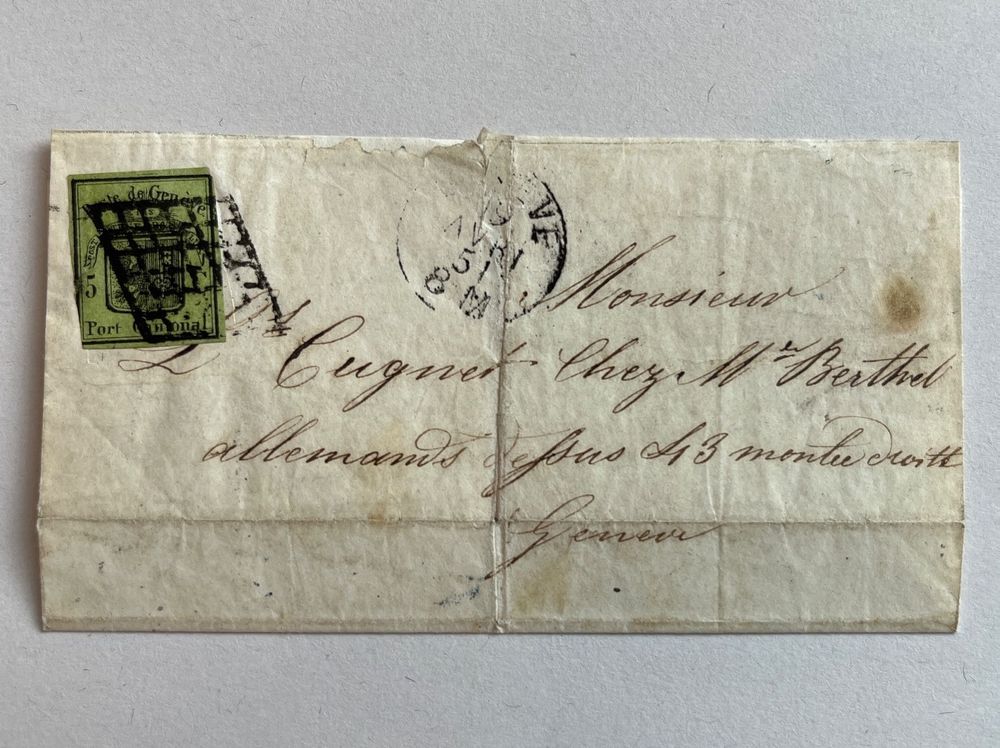 Poste de Genève
5
Port Cantonal
Monsieur
Ls Cugnet Chez Mr Berthel
allemands dessus 43 montée droitt
Genève